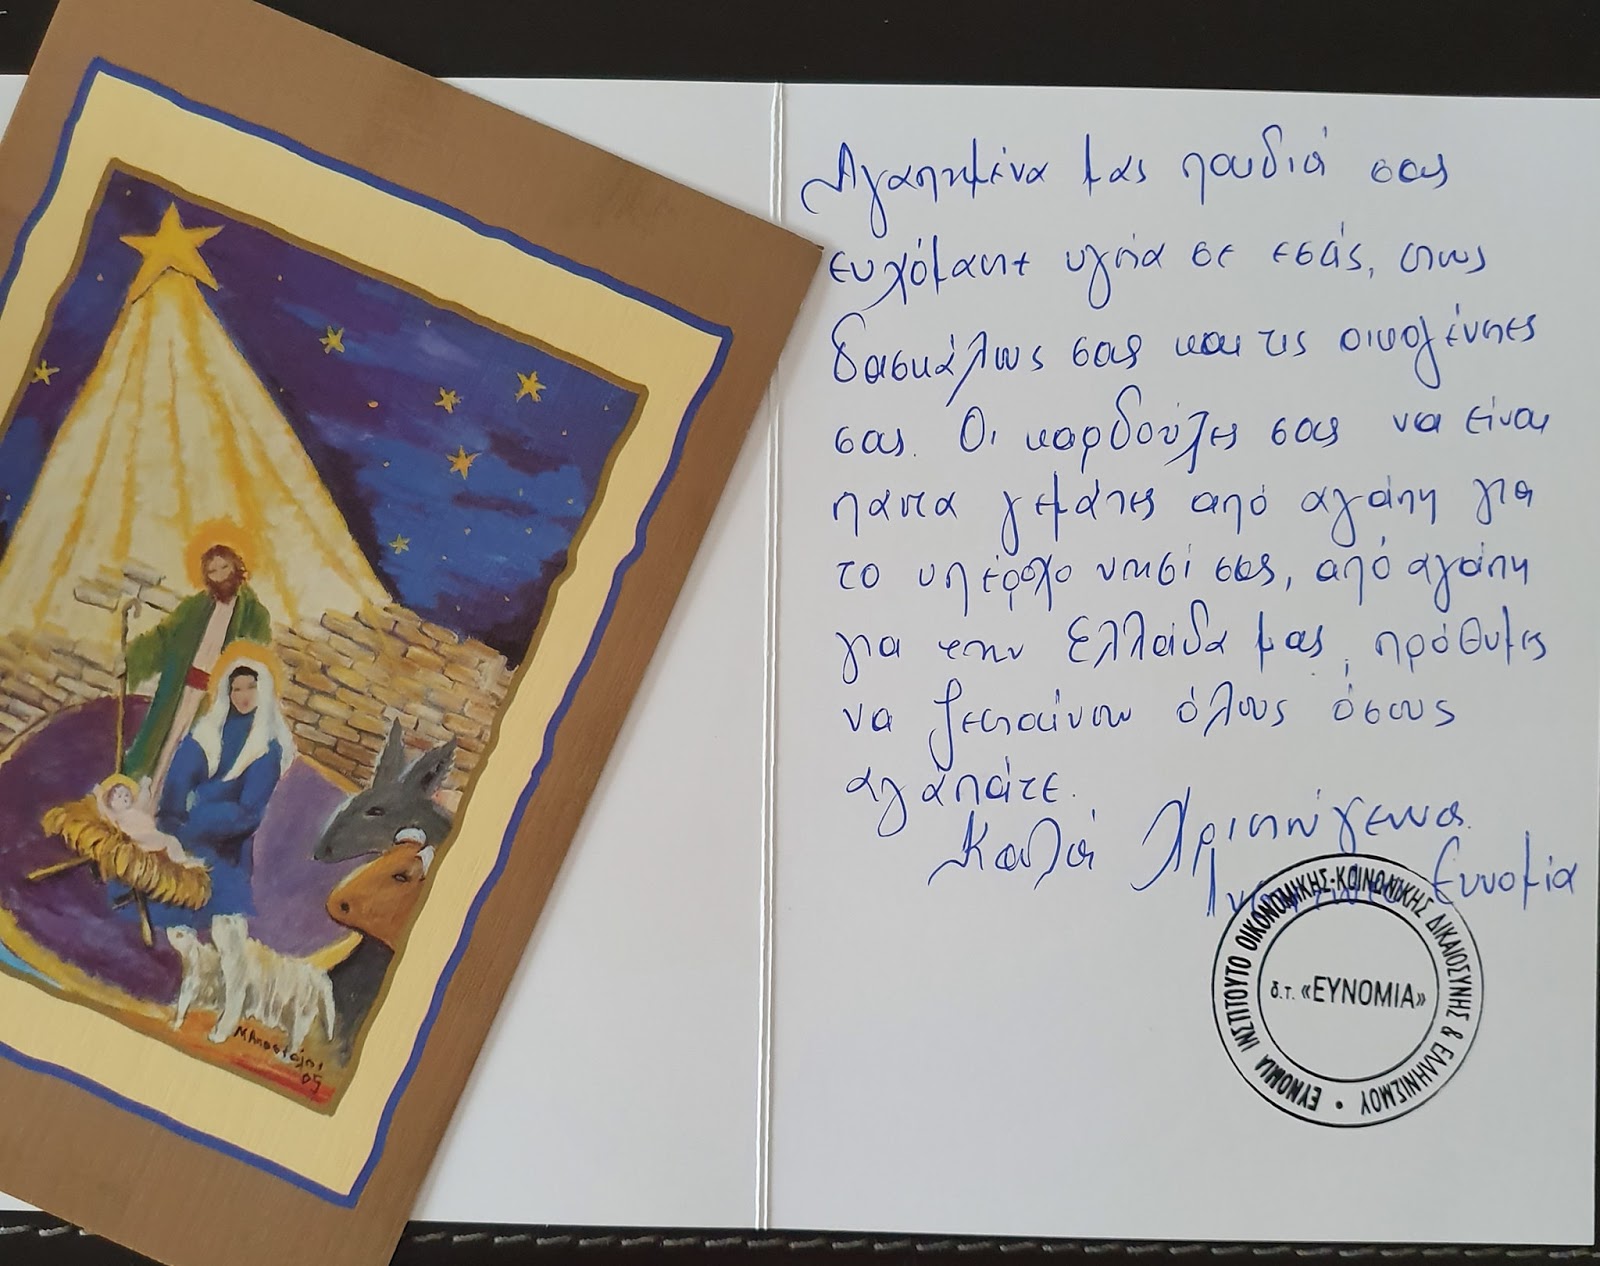 Αγαπημένα μας παιδιά σας
ευχόμαστε υγεία σε εσάς, στους
δασκάλους σας και τις οικογένειες
σας. Οι καρδούλες σας να είναι
παντα γεμάτες από αγάπη για
το υπέροχο νησί σας, από αγάπη
για την Ελλάδα μας, πρόθυμες
να ζεσταίνουν όλους όσους
αγαπάτε.
Καλά Χριστούγεννα
Ινστιτούτο Ευνομία
ΕΥΝΟΜΙΑ ΙΝΣΤΙΤΟΥΤΟ ΟΙΚΟΝΟΜΙΚΗΣ-ΚΟΙΝΩΝΙΚΗΣ ΔΙΚΑΙΟΣΥΝΗΣ & ΕΛΛΗΝΙΣΜΟΥ •
δ.τ. «ΕΥΝΟΜΙΑ»
Μ Αποστόλοι
05